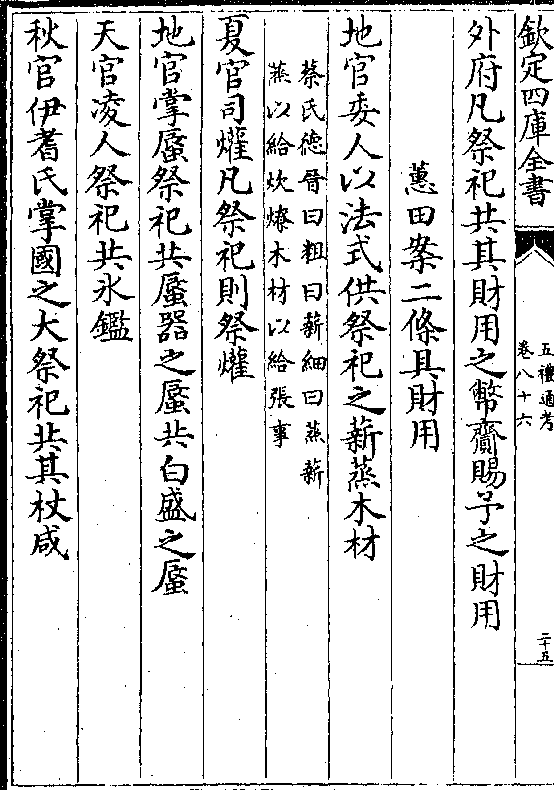 欽定四庫全書
五禮通考
卷八十六
二十五
外府凡祭祀共其財用之幣齎賜予之財用
蕙田案二條具財用
地官委人以法式供祭祀之薪蒸木材
蔡氏德晉曰粗曰薪細曰蒸薪
蒸以給炊燎木材以給張事
夏官司爟凡祭祀則祭爟
地官掌蜃祭祀共蜃器之蜃共白盛之蜃
天官凌人祭祀共冰鑑
秋官伊耆氏掌國之大祭祀共其杖咸